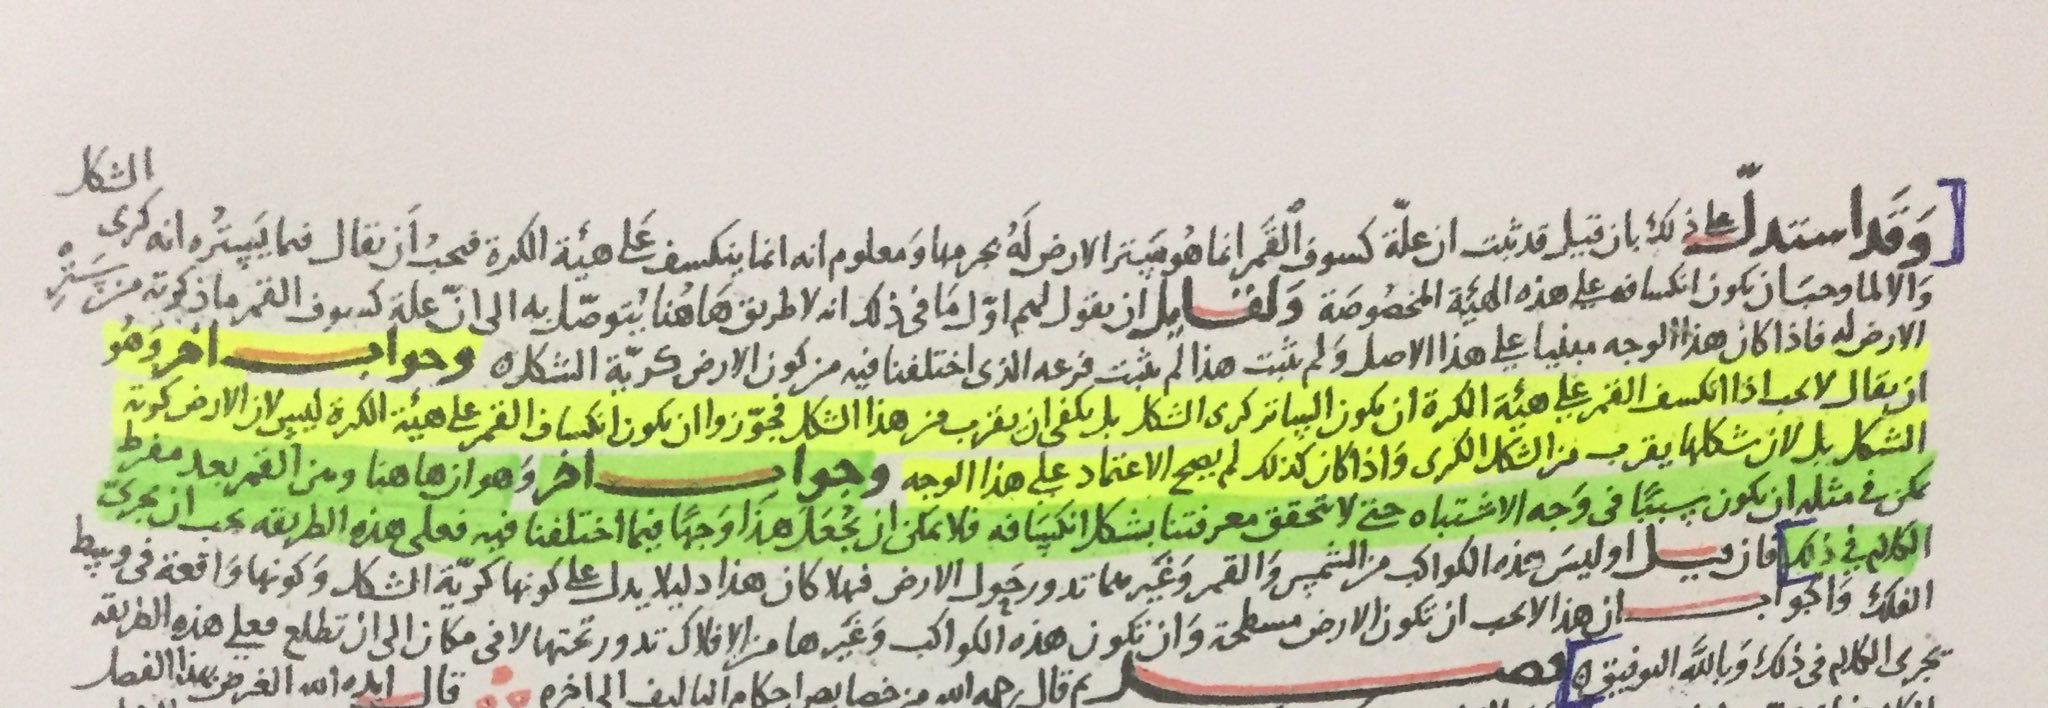 الشكل
وقد استدل على ذلك بان قيل قد ثبت ان علّة كسوف القمر انما هو ستر الارض لهُ بجرمها ومعلوم انه انما ينكسف على هيئة الكرة فيجبُ اَن يقال فيما يَستره انه كرى
والا لما وجب ان يكون انكسافه على هذه الهيئة المخصوصة ولقايل ان يقول لهم اوّل ما فى ذلك انه لا طريق هاهُنا يُتوصّل به الى انّ علة كسوف القمر ما ذكرته من سَتْرِ
الارض له فاذا كان هذا الوجه مبنيا على هذا الاصل ولم يثبت هذا لم يثبت فرعه الذى اختلفنا فيه من كون الارض كريّة الشكل ٥ وجواب اخر وهُو
ان يقال لا يجب اذا انكسف القمر على هيئة الكرة ان يكون الساتر كرى الشكل بل يكفى ان يقرب من هذا الشكل فجوّزوا ان يكون انكساف القمر على هيئة الكرة ليس لان الارض كرية
الشكل بل لان شكلها يقرب من الشكل الكرى واذا كان كذلك لم يصح الاعتماد على هذا الوجه وجواب اخر وهو ان هاهنا ومن القمر بعد مفرط
يمكن فى مثله ان يكون سببًا فى وجه الاشتباه حتى لا تتحقق معرفتنا بشكل انكسافه فلا يمكن ان يُجْعَل هذا وَجهًا فيما اختلفنا فيه فعلى هذه الطريقه يجب ان يجرى
الكلام فى ذلك فان قيل اوليس هذه الكواكب من الشمس والقمر وغيرهما تدور حول الارض فهلا كان هذا دليلا يدل على كونها كريّة الشكل وكونها واقعة فى وسط
الفلك والجواب ان هذا لا يجب ان تكون الارض مسطحة وان تكون هذه الكواكب وغيرها من الافلاك تدور تحتها لا فى مكان الى ان تطلع فعلى هذه الطريقه
يجرى الكلام فى ذلك وبالله التوفيق ٥ فصل ثم قال رحمه الله من خصايص احكام التاليف الى اخره قال ايده الله الغرض بهذا الفصل